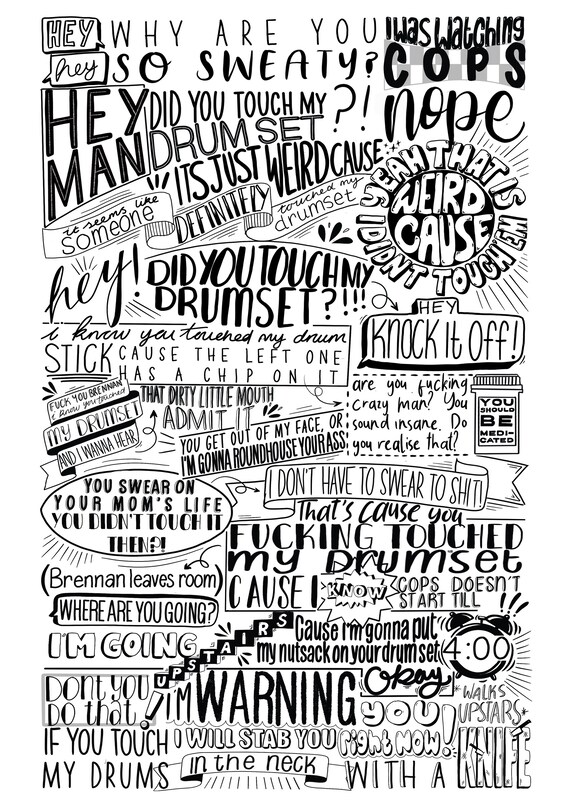 HEY WHY ARE YOU
hey SO SWEATY?
I was watching
COPS
HEY MAN DID YOU TOUCH MY
DRUM SET ?!
nope
ITS JUST WEIRD CAUSE
it seems like
someone
DEFINITELY
touched my
drumset
YEAH THAT IS
WEIRD
CAUSE
I DIDNT TOUCH 'EM
hey! DID YOU TOUCH MY
DRUMSET?!!!
HEY
KNOCK it OFF!
i know you touched my drum
STICK CAUSE THE LEFT ONE
HAS A CHIP ON IT
FUCK YOU BRENNAN
i know you touched
MY DRUMSET
AND I WANNA HEAR
THAT DIRTY LITTLE MOUTH
ADMIT IT
YOU GET OUT OF MY FACE, OR
I'M GONNA ROUNDHOUSE YOUR ASS
are you fucking
crazy man? You
sound insane. Do
you realise that?
YOU
SHOULD
BE
MEDI-
CATED
YOU SWEAR ON
YOUR MOM'S LIFE
YOU DIDN'T TOUCH IT
THEN?!
I DON'T HAVE TO SWEAR TO SHIT!
That's cause you
FUCKING TOUCHED
my Drumset
CAUSE I KNOW COPS DOESN'T
START TILL
4:00
(Brennan leaves room)
WHERE ARE YOU GOING?
I'M GOING UPSTAIRS
Cause i'm gonna put
my nutsack on your drum set
Okay
*WALKS
UPSTAIRS*
Dont you
Do that!
I'M WARNING YOU!
IF YOU TOUCH
MY DRUMS
I WILL STAB YOU right now!
in the neck
WITH A KNIFE